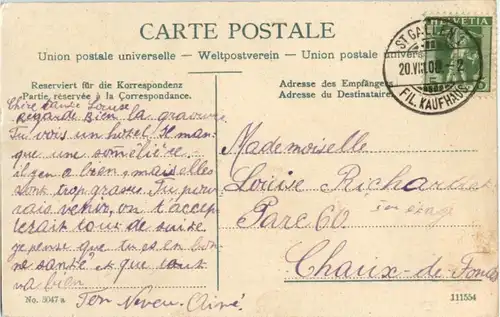 CARTE POSTALE
Union postale universelle — Weltpostverein — Union postale universelle
ST. GALLEN
20.VIII.08
FIL. KAUFHAUS
HELVETIA
5
Reserviert für die Korrespondenz
Partie réservée à la Correspondance.
Adresse des Empfängers
Adresse du Destinataire
Chère tante Louise
Regarde bien la gravure
Tu vois un hotel. Il man-
que une somêlière
il y en a bien, mais elles
sont trop grasse. Tu pour
rais venir, on t'accep
terait tout de suite.
Je pense que tu es en bon
ne santé et que tout
va bien
Ton Neveu Aimé
Mademoiselle
Louise Richardet
Parc 60
Chaux-de-Fonds
No. 3047 a
111554